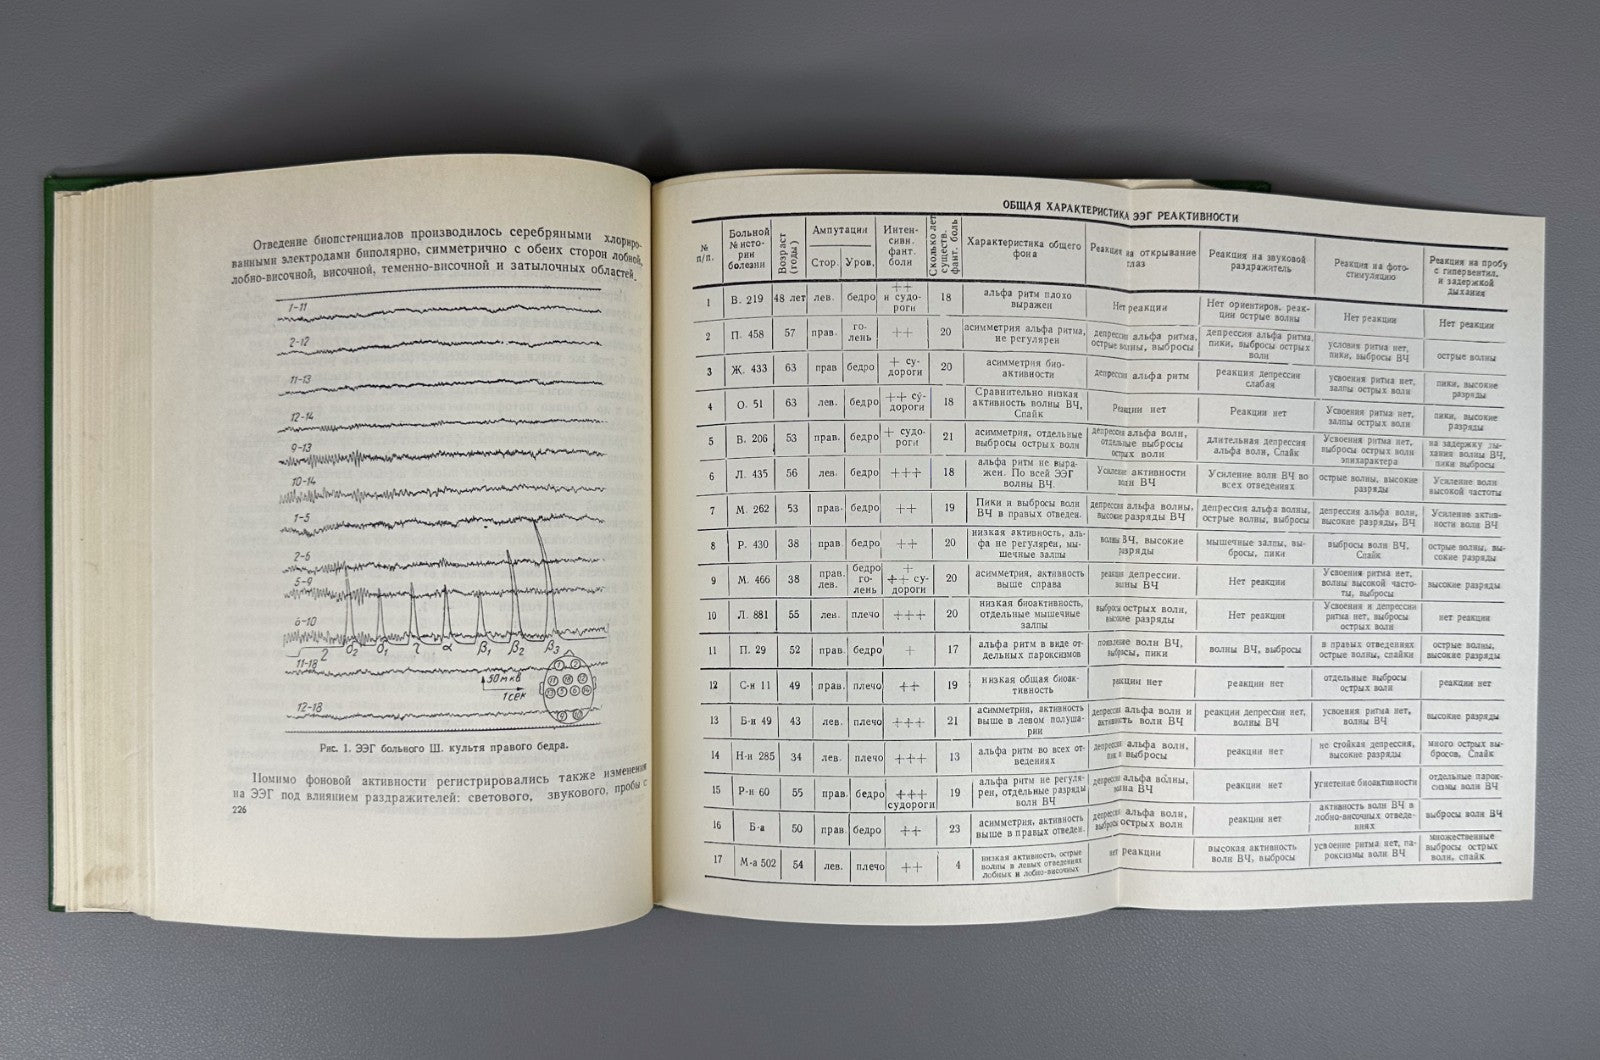 Отведение биопотенциалов производилось серебряными хлориро-
ванными электродами биполярно, симметрично с обеих сторон лобной,
лобно-височной, височной, теменно-височной и затылочных областей.
1-11
2-12
11-13
12-14
9-13
10-14
1-5
2-6
5-9
6-10
11-18
50мкв
1сек
12-18
Рис. 1. ЭЭГ больного Ш. культя правого бедра.
Помимо фоновой активности регистрировались также изменения
на ЭЭГ под влиянием раздражителей: светового, звукового, пробы с
226
ОБЩАЯ ХАРАКТЕРИСТИКА ЭЭГ РЕАКТИВНОСТИ
№ п/п. | Больной № исто-рии болезни | Возраст (годы) | Ампутации Стор. Уров. | Интен-сивн. фант. боли | Сколько лет существ. фант. боль | Характеристика общего фона | Реакция на открывание глаз | Реакция на звуковой раздражитель | Реакция на фото-стимуляцию | Реакция на пробу с гипервентил. и задержкой дыхания
1 | В. 219 | 48 лет | лев. | бедро | ++ и судо-роги | 18 | альфа ритм плохо выражен | Нет реакции | Нет ориентиров, реак-ции острые волны | Нет реакции | Нет реакции
2 | П. 458 | 57 | прав. | го-лень | ++ | 20 | асимметрия альфа ритма, не регулярен | депрессия альфа ритма, острые волны, выбросы | депрессия альфа ритма, пики, выбросы острых волн | условия ритма нет, пики, выбросы ВЧ | острые волны
3 | Ж. 433 | 63 | прав | бедро | + су-дороги | 20 | асимметрия био-активности | депрессия альфа ритм | реакция депрессии слабая | усвоения ритма нет, залпы острых волн | пики, высокие разряды
4 | О. 51 | 63 | лев. | бедро | ++ су-дороги | 18 | Сравнительно низкая активность волны ВЧ, Спайк | Реакции нет | Реакции нет | Усвоения ритма нет, залпы острых волн | пики, высокие разряды
5 | В. 206 | 53 | прав. | бедро | + судо-роги | 21 | асимметрия, отдельные выбросы острых волн | депрессия альфа волн, отдельные выбросы острых волн | длительная депрессия альфа волн, Спайк | Усвоения ритма нет, выбросы острых волн эпихарактера | на задержку ды-хания волны ВЧ, пики выбросы
6 | Л. 435 | 56 | лев. | бедро | +++ | 18 | альфа ритм не выра-жен. По всей ЭЭГ волны ВЧ. | Усиление активности волн ВЧ | Усиление волн ВЧ во всех отведениях | острые волны, высокие разряды | Усиление волн высокой частоты
7 | М. 262 | 53 | прав. | бедро | ++ | 19 | Пики и выбросы волн ВЧ в правых отведен. | депрессия альфа волны, высокие разряды ВЧ | депрессия альфа волны, острые волны, выбросы | депрессия альфа волн, высокие разряды, ВЧ | Усиление актив-ности волн ВЧ
8 | Р. 430 | 38 | прав | бедро | ++ | 20 | низкая активность, аль-фа не регулярен, мы-шечные залпы | волны ВЧ, высокие разряды | мышечные залпы, вы-бросы, пики | выбросы волн ВЧ, Спайк | острые волны, вы-сокие разряды
9 | М. 466 | 38 | прав. лев. | бедро го-лень | + ++ су-дороги | 20 | асимметрия, активность выше справа | реакция депрессии. волны ВЧ | Нет реакции | Усвоения ритма нет, волны высокой часто-ты, выбросы | высокие разряды
10 | Л. 881 | 55 | лев. | плечо | +++ | 20 | низкая биоактивность, отдельные мышечные залпы | выбросы острых волн, высокие разряды | Нет реакции | Усвоения и депрессии ритма нет, выбросы острых волн | нет реакции
11 | П. 29 | 52 | прав. | бедро | + | 17 | альфа ритм в виде от-дельных пароксизмов | появление волн ВЧ, выбросы, пики | волны ВЧ, выбросы | в правых отведениях острые волны, спайки | острые волны, высокие разряды
12 | С-н 11 | 49 | прав. | плечо | ++ | 19 | низкая общая биоак-тивность | реакции нет | реакции нет | отдельные выбросы острых волн | реакции нет
13 | Б-н 49 | 43 | лев. | плечо | +++ | 21 | асимметрия, активность выше в левом полуша-рии | депрессия альфа волн и активность волн ВЧ | реакции депрессии нет, волны ВЧ | усвоения ритма нет, волны ВЧ | высокие разряды
14 | Н-н 285 | 34 | лев. | плечо | +++ | 13 | альфа ритм во всех от-ведениях | депрессия альфа волн, пики выбросы | реакции нет | не стойкая депрессия, высокие разряды | много острых вы-бросов, Спайк
15 | Р-н 60 | 55 | прав. | бедро | +++ судороги | 19 | альфа ритм не регуля-рен, отдельные разряды волн ВЧ | депрессия альфа волны, волна ВЧ | реакции нет | угнетение биоактивности | отдельные парок-сизмы волн ВЧ
16 | Б-а | 50 | прав | бедро | ++ | 23 | асимметрия, активность выше в правых отведен. | депрессия альфа волн, выбросы острых волн | реакции нет | активность волн ВЧ в лобно-височных отведе-ниях | выбросы волн ВЧ
17 | М-а 502 | 54 | лев. | плечо | ++ | 4 | низкая активность, острые волны в левых отведениях лобных и лобно-височных | нет реакции | высокая активность волн ВЧ, выбросы | усвоение ритма нет, па-роксизмы волн ВЧ | множественные выбросы острых волн, спайк